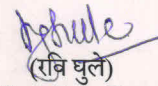 (रवि घुले)